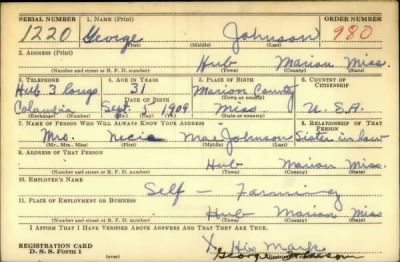 SERIAL NUMBER 1. NAME (Print) ORDER NUMBER
1220 George Johnson 980
(First) (Middle) (Last)
2. ADDRESS (Print)
Hub Marion Miss.
(Number and street or R. F. D. number) (Town) (County) (State)
3. TELEPHONE 4. AGE IN YEARS 5. PLACE OF BIRTH 6. COUNTRY OF CITIZENSHIP
Hub 3 longs 31 Marion County
DATE OF BIRTH (Town or county)
Columbia Sept 5 1909 Miss U.S.A.
(Exchange) (Number) (Mo.) (Day) (Yr.) (State or country)
7. NAME OF PERSON WHO WILL ALWAYS KNOW YOUR ADDRESS 8. RELATIONSHIP OF THAT PERSON
Mrs. Necia Mae Johnson Sister in law
(Mr., Mrs., Miss) (First) (Middle) (Last)
9. ADDRESS OF THAT PERSON
Hub Marion Miss.
(Number and street or R. F. D. number) (Town) (County) (State)
10. EMPLOYER'S NAME
Self - Farming
11. PLACE OF EMPLOYMENT OR BUSINESS
Hub Marion Miss
(Number and street or R. F. D. number) (Town) (County) (State)
I AFFIRM THAT I HAVE VERIFIED ABOVE ANSWERS AND THAT THEY ARE TRUE.
REGISTRATION CARD X His Mark
D. S. S. Form 1 George Johnson